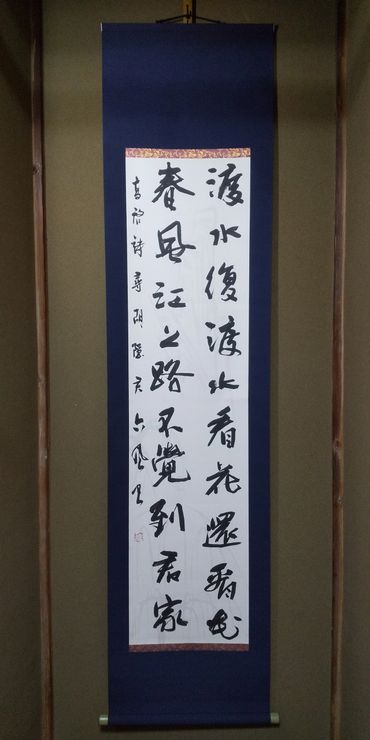 渡水復渡水看花還看花
春風江上路不覺到君家
高啓詩尋胡隠君